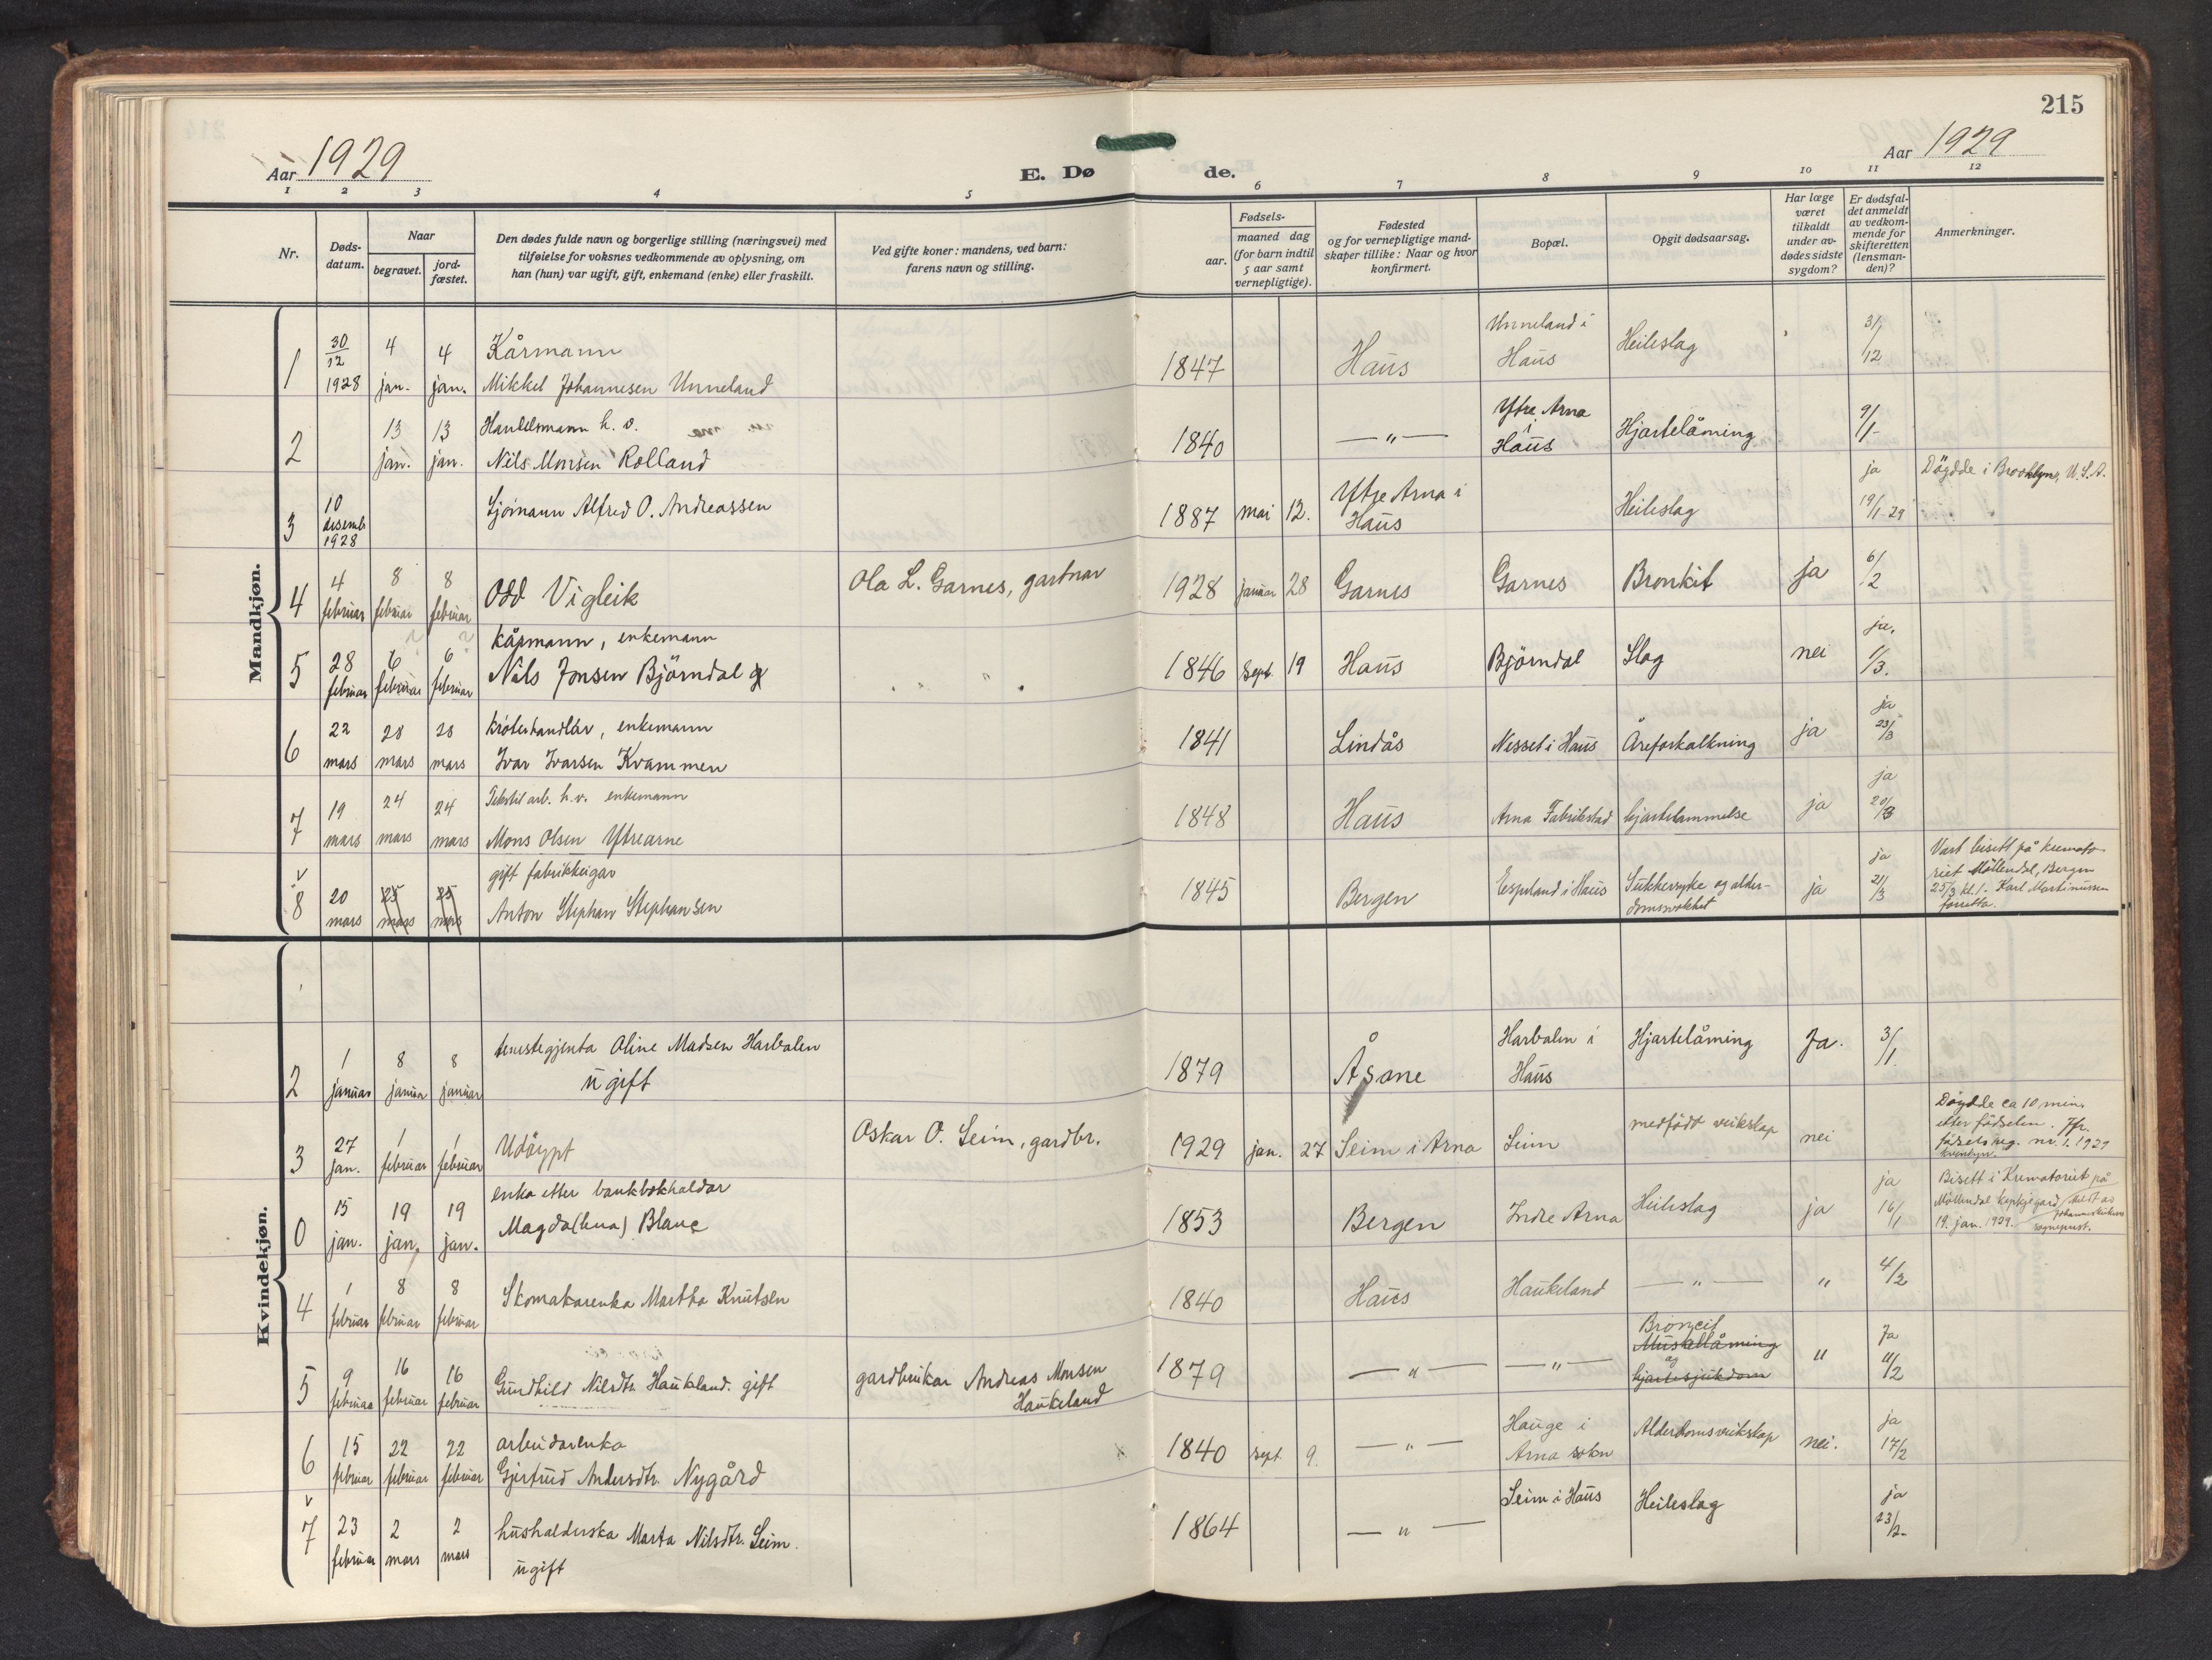 215
Aar 1929
E. Dø de.
Aar 1929
1 2 3 4 5 6 7 8 9 10 11 12
Nr.
Døds-
datum.
Naar
begravet.
jord-
fæstet.
Den dødes fulde navn og borgerlige stilling (næringsvei) med
tilføielse for voksnes vedkommende av oplysning, om
han (hun) var ugift, gift, enkemand (enke) eller fraskilt.
Ved gifte koner: mandens, ved barn:
farens navn og stilling.
Fødsels-
aar.
maaned dag
(for barn indtil
5 aar samt
vernepligtige).
Fødested
og for vernepligtige mand-
skaper tillike: Naar og hvor
konfirmert.
Bopæl.
Opgit dødsaarsag.
Har læge
været
tilkaldt
under av-
dødes sidste
sygdom?
Er dødsfal-
det anmeldt
av vedkom-
mende for
skifteretten
(lensman-
den)?
Anmerkninger.
Mandkjøn.
1 30/12 1928 4 jan. 4 jan. Kårmann
Mikkel Johannesen Unneland 1847 Haus Unneland i Haus Heileslag 31/12
2 13 jan. 13 jan. Handelsmann h. v.
Nils Monsen Rolland 1840 —"— Ytre Arna i Haus Hjartelåming 9/1-
3 10 desemb. 1928 Sjömann Alfred O. Andreassen 1887 mai 12. Ytre Arna i Haus Heileslag ja 19/1-29 Döydde i Brooklyn, U.S.A.
4 4 februar 8 februar 8 februar Odd Vigleik Ola L. Garnes, gartnar 1928 januar 28 Garnes Garnes Bronkit ja 6/2
5 28 februar 6 februar 6 februar kårmann, enkemann
Nils Jonsen Björndal 1846 Sept. 19 Haus Björndal Slag nei ja. 1/3.
6 22 mars 28 mars 28 mars kröterhandlar, enkemann
Ivar Ivarsen Kvammen 1841 Lindås Nesset i Haus Åreforkalkning ja ja 23/3
7 19 mars 24 mars 24 mars Tekstilarb. h.v. enkemann
Mons Olsen Ytrearne 1848 Haus Arna Fabrikstad hjartelammelse ja ja 20/3
v
8 20 mars 25 mars 25 mars gift fabrikkeigar
Anton Stephan Stephansen 1845 Bergen Espeland i Haus Sukkersyke og alder-
domssvakhet ja ja 21/3 Vart bisett på kremato-
riet Möllendal, Bergen
25/3 kl. 1 - Karl Martinussen
forretta.
Kvindekjøn.
2 1 januar 8 januar 8 januar tenestegjenta Oline Madsen Harbalen
ugift 1879 Åsane Harbalen i Haus Hjartelåming Ja. 3/1.
3 27 jan. 1 februar 1 februar Udöypt Oskar O. Seim, gardbr. 1929 jan. 27 Seim i Arna Seim medfödt veikskap nei Döydde ca 10 min.
etter födselen. Jfr.
födselsreg. nr. 1. 1929
kvinkjn.
0 15 jan. 19 jan. 19 jan. enka etter bankbokhaldar
Magda(lena) Blanc 1853 Bergen Indre Arna Heileslag ja ja 16/1 Bisett i Krematoriet på
Möllendal kyrkjegard
19. jan. 1929. sogneprest.
4 1 februar 8 februar 8 februar Skomakarenka Martha Knutsen 1840 Haus Haukeland —"— " 4/2
5 9 februar 16 februar 16 februar Gundhild Nilsdtr. Haukland. gift gardbrukar Andreas Monsen
Haukeland 1879 —"— —"— Bronkit
Muskellåming
og
hjartesjukdom " Ja 11/2
6 15 februar 22 februar 22 februar arbeidarenka
Gjertrud Andersdtr. Nygård 1840 sept. 9. —"— Hauge i
Arna sokn Alderdomsveikskap nei. ja 17/2
v
7 23 februar 2 mars 2 mars hushalderska Marta Nilsdtr. Seim.
ugift 1864 —"— Seim i Haus Heileslag ja 23/2-